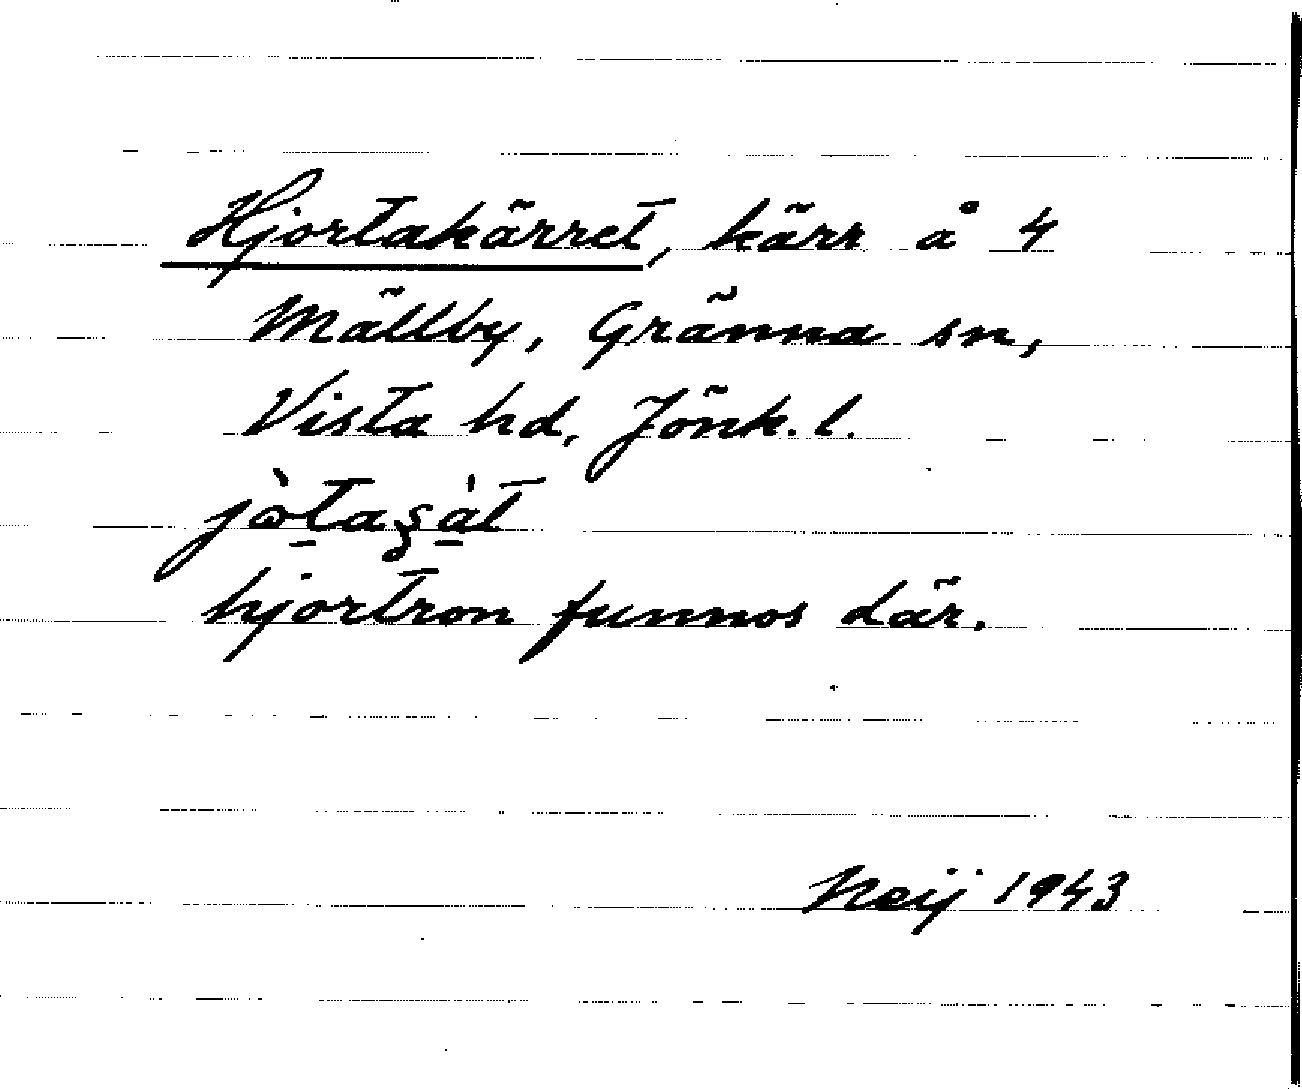 Hjortakärret, kärr å 4
Mällby, Gränna sn,
Vista hd, Jönk. l.
hjortron funnos där.
Neij 1943